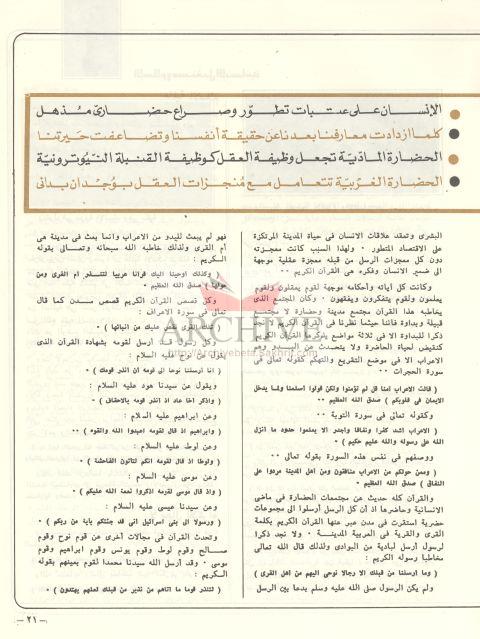 الإنسان على عتبات تطور وصراع حضاري مذهل
كلما ازدادت معارفنا بعدنا عن حقيقة أنفسنا وتضاعفت حيرتنا
الحضارة المادية تجعل وظيفة العقل كوظيفة القنبلة النيوترونية
الحضارة الغربية تتعامل مع منجزات العقل بوجدان بدائى
البشرى وتعقد علاقات الانسان فى حياة المدينة المرتكزة
على الاقتصاد المتطور ٠ ولهذا السبب كانت معجزته
دون كل معجزات الرسل من قبله معجزة عقلية موجهة
الى ضمير الانسان وفكره هى القرآن الكريم ٠٠
وكانت كل آياته وأحكامه موجهة لقوم يعقلون ولقوم
يعلمون ولقوم يتفكرون ويفقهون ٠ وكان المجتمع الذى
يخاطبه هذا القرآن مجتمع مدينة وحضارة لا مجتمع
قبيلة وبداوة فاننا حيثما نظرنا فى القرآن لا نجد
ذكرا للبداوة الا فى ثلاثة مواضع يذكرها القرآن الكريم
كنقيض لحياة الحاضرة ولا يتحدث عن البدو وهم
الاعراب الا فى موضع التقريع والتهكم كقوله تعالى فى
سورة الحجرات ٠٠
( قالت الاعراب آمنا قل لم تؤمنوا ولكن قولوا أسلمنا ولما يدخل
الايمان فى قلوبكم ) صدق الله العظيم ٠٠
وكقوله تعالى فى سورة التوبة ٠٠
( الاعراب أشد كفرا ونفاقا وأجدر ألا يعلموا حدود ما أنزل
الله على رسوله والله عليم حكيم ) ٠
ووصفهم فى نفس هذه السورة بقوله تعالى ٠٠
( وممن حولكم من الاعراب منافقون ومن أهل المدينة مردوا على
النفاق ) صدق الله العظيم ٠
والقرآن كله حديث عن مجتمعات الحضارة فى ماضى
الانسانية وحاضرها اذ أن كل الرسل أرسلوا الى مجموعات
حضرية استقرت فى مدن عبر عنها القرآن الكريم بكلمة
القرى والقرية فى العربية المدينة ٠٠ ولا نجد ذكرا
لرسول أرسل لبادية من البوادى ولذلك قال الله تعالى
مخاطبا رسوله الكريم :
( وما أرسلنا من قبلك الا رجالا نوحى اليهم من أهل القرى )
ولم يكن الرسول صلى الله عليه وسلم بدعا بين الرسل
فهو لم يبعث للبدو من الاعراب وانما بعث فى مدينة هى
أم القرى ولذلك خاطبه الله سبحانه وتعالى بقوله
الكريم :
( وكذلك أوحينا اليك قرآنا عربيا لتنذر أم القرى ومن
حولها ) صدق الله العظيم ٠
وكل قصص القرآن الكريم قصص مدن كما قال
تعالى فى سورة الاعراف :
( تلك القرى نقص عليك من أنبائها ) ٠
وكل رسول أرسل لقومه بشهادة القرآن الذى
يقول عن نوح عليه السلام :
( انا أرسلنا نوحا الى قومه أن أنذر قومك ) ٠
ويقول عن سيدنا هود عليه السلام :
( واذكر أخا عاد اذ أنذر قومه بالاحقاف ) ٠
وعن ابراهيم عليه السلام :
( وابراهيم اذ قال لقومه اعبدوا الله واتقوه ) ٠٠
وعن لوط عليه السلام :
( ولوطا اذ قال لقومه انكم لتأتون الفاحشة ) ٠
وعن موسى عليه السلام :
( واذ قال موسى لقومه اذكروا نعمة الله عليكم ) ٠
وعن سيدنا عيسى عليه السلام :
( ورسولا الى بنى اسرائيل أنى قد جئتكم بآية من ربكم ) ٠
وتحدث القرآن فى مجالات أخرى عن قوم نوح وقوم
صالح وقوم لوط وقوم يونس وقوم ابراهيم وقوم
موسى ٠ وقد أرسل الله سيدنا محمدا لقوم بعينهم بقوله
الكريم :
( لتنذر قوما ما أتاهم من نذير من قبلك لعلهم يهتدون ) ٠
ARCHIVE
http://Archivebeta.Sakhrit.com
— ٢١ —